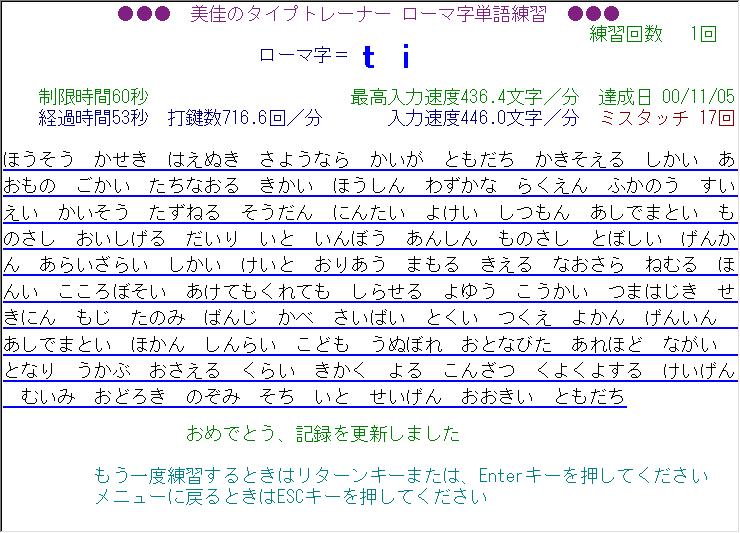 ●●● 美佳のタイプトレーナー ローマ字単語練習 ●●●
練習回数 1回
ローマ字= t i
制限時間60秒 最高入力速度436.4文字/分 達成日 00/11/05
経過時間53秒 打鍵数716.6回/分 入力速度446.0文字/分 ミスタッチ 17回
ほうそう かせき はえぬき さようなら かいが ともだち かきそえる しかい あ
おもの ごかい たちなおる きかい ほうしん わずかな らくえん ふかのう すい
えい かいそう たずねる そうだん にんたい よけい しつもん あしでまとい も
のさし おいしげる だいり いと いんぼう あんしん ものさし とぼしい げんか
ん あらいざらい しかい けいと おりあう まもる きえる なおさら ねむる ほ
んい こころぼそい あけてもくれても しらせる よゆう こうかい つまはじき せ
きにん もじ たのみ ばんじ かべ さいばい とくい つくえ よかん げんいん
あしでまとい ほかん しんらい こども うぬぼれ おとなびた あれほど ながい
となり うかぶ おさえる くらい きかく よる こんざつ くよくよする けいげん
むいみ おどろき のぞみ そち いと せいげん おおきい ともだち
おめでとう、記録を更新しました
もう一度練習するときはリターンキーまたは、Enterキーを押してください
メニューに戻るときはESCキーを押してください